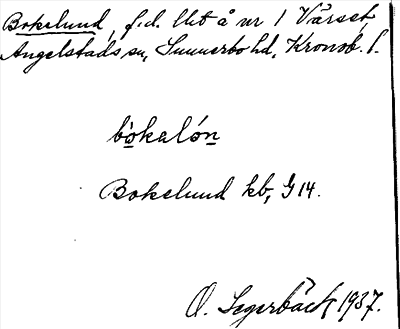 Bokelund, f.d. lht å nr 1 Värset,
Angelstads sn, Sunnerbo hd, Kronob. l.
bòkalón
Bokelund kb, G 14.
O. Segerbäck, 1937.